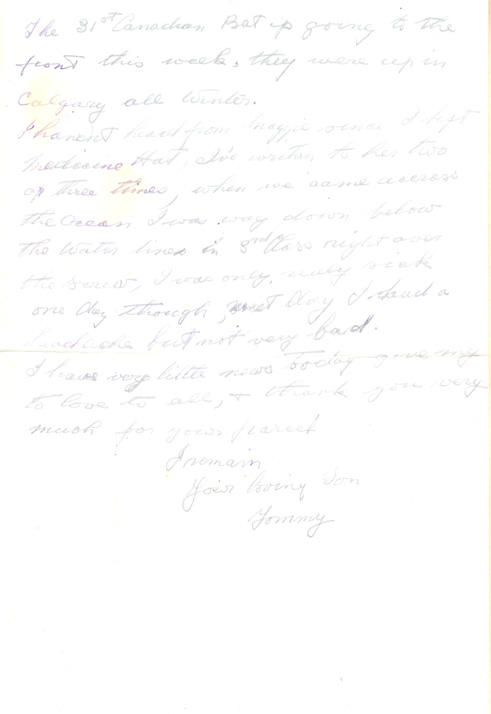 The 31st Canadian Bat is going to the
front this week, they were up in
Calgary all Winter.
I havent heard from Maggie since I left
Medicine Hat, I've written to her two
or three times, when we came accross
the Ocean I was way down below
the water lines in 3rd Class right over
the screw, I was only sick
one day though, next day I had a
headache but not very bad.
I have very little news today give my
to love to all, + thank you very
much for your parcel
I remain
Your loving Son
Tommy